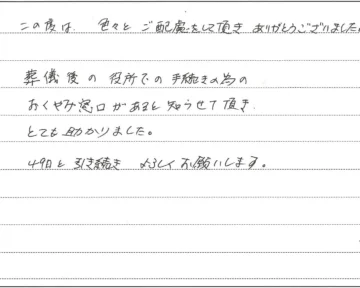 この度は 色々と ご配慮をして頂き ありがとうございました
葬儀後の役所での手続きの為の
おくやみ窓口があると知らせて頂き
とても助かりました。
49日と引き続き よろしくお願いします。